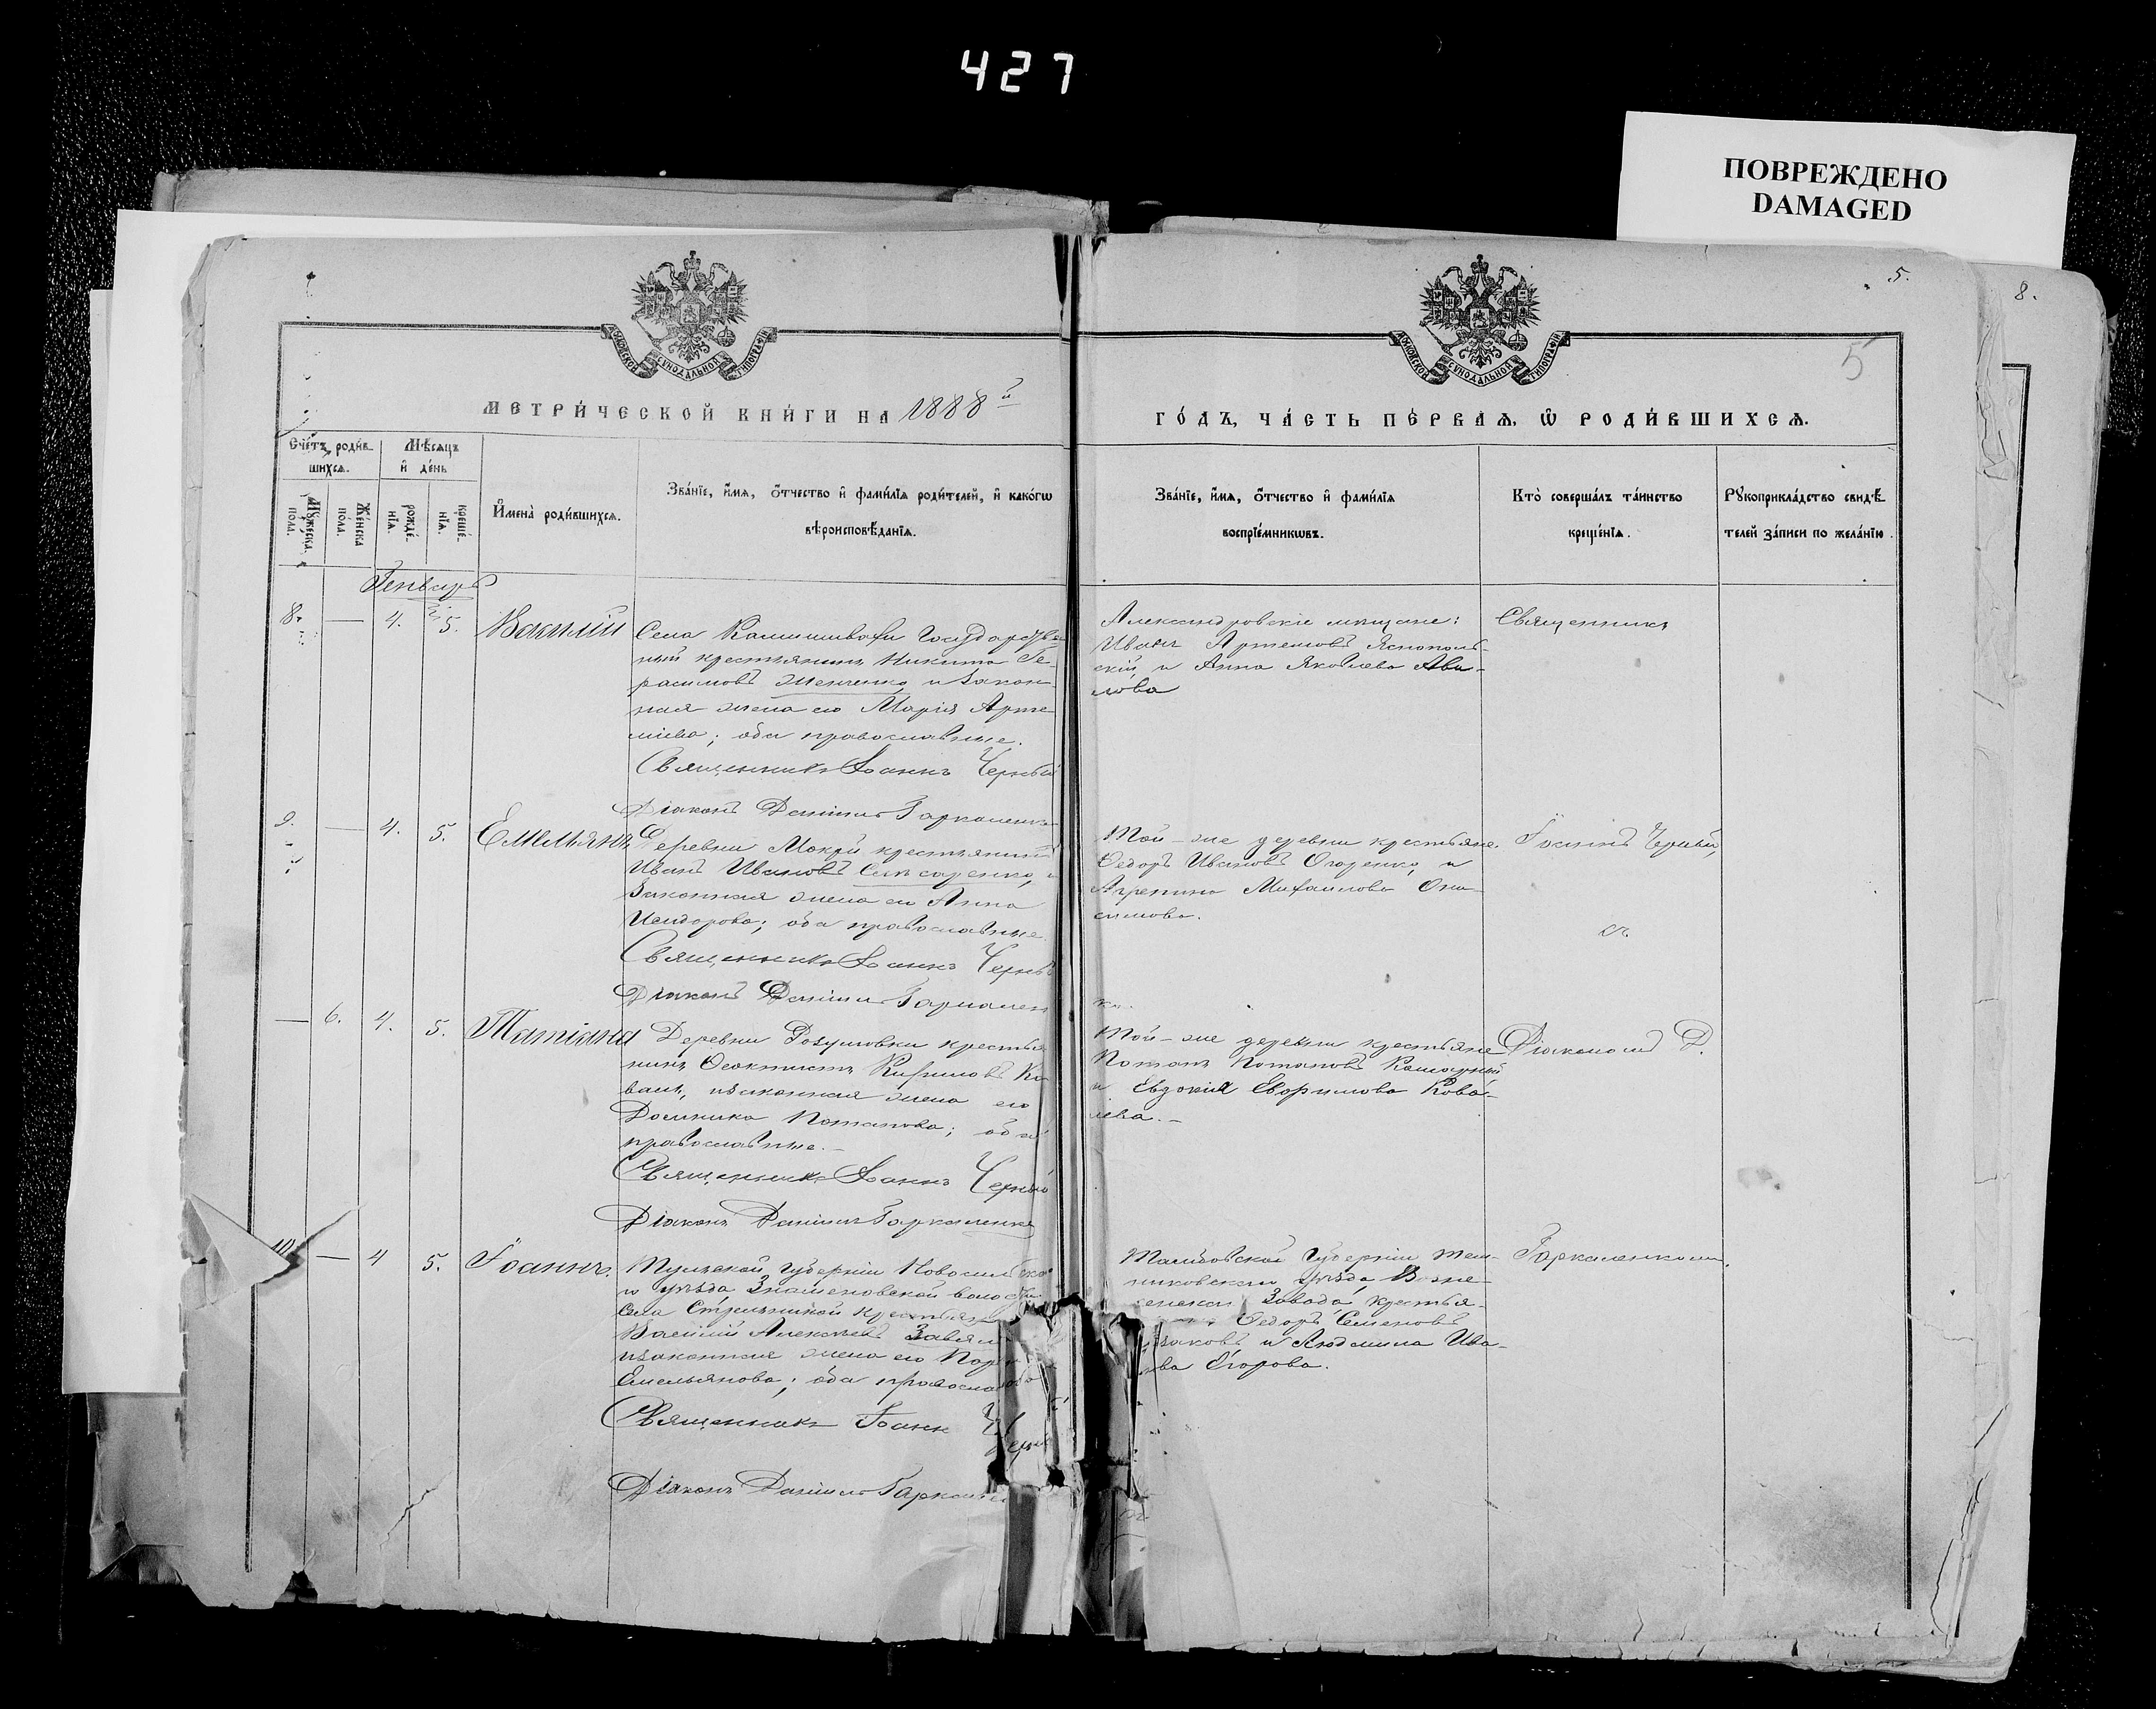 427
ПОВРЕЖДЕНО
DAMAGED
5.
8.
5
МОСКОВСКОЙ СѴНОДАЛЬНОЙ ТИПОГРАФІИ
МОСКОВСКОЙ СѴНОДАЛЬНОЙ ТИПОГРАФІИ
МЕТРИ́ЧЕСКОЙ КНИ́ГИ НА 1888й
ГО́ДЪ, ЧА́СТЬ ПЕ́РВАѦ, Ѡ҆ РОДИ́ВШИХСѦ.
Сче́тъ роди́в-
шихсѧ.
Мѣ́сѧцъ
и҆ де́нь
Мꙋ́жеска пола.
Же́нска пола.
рожде́-
нїѧ.
креще́-
нїѧ.
И҆мена̀ роди́вшихсѧ.
Зва́нїе, и҆́мѧ, ѻ҆́тчество и҆ фами́лїѧ роди́телей, и҆ како́гѡ
вѣроисповѣ́данїѧ.
Зва́нїе, и҆́мѧ, ѻ҆́тчество и҆ фами́лїѧ
воспрїе́мникѡвъ.
Кто̀ соверша́лъ та́инство
креще́нїѧ.
Рꙋкоприкла́дство свидѣ́-
телей за́писи по жела́нїю.
Генварь
8. — 4. 5. Василій
Села Камышивахи Государствен
ный крестьянинъ Никита Ге-
расимовъ Шевченко и закон-
ная жена его Марія Арте
міева; оба православные.
Священникъ Іоаннъ Черный
Діаконъ Даніилъ Гаркаленко
Александровскіе мѣщане:
Иванъ Артемовъ Яснополь-
скій, и Анна Яковлева Ави-
лова
Священникъ
9. — 4. 5. Емельянъ
Деревни Мокрой крестьянинъ
Иванъ Ивановъ Слюсаренко, и
Законная жена его Анна
Исидорова; оба православные
Священникъ Іоаннъ Черный
Діаконъ Даніилъ Гаркален
ко.
Той-же деревни крестьяне.
Ѳедоръ Ивановъ Огоренко, и
Агрепина Михаилова Они-
симова.
Іоаннъ Черный,
съ
— 6. 4. 5. Татіана
Деревни Розумовки крестья
нинъ Ѳеоктистъ Кириловъ Ко
валь, и законная жена его
Домника Потапова; оба
православные.-
Священникъ Іоаннъ Черный
Діаконъ Даніилъ Гаркаленко
Той-же деревни крестьяне
Потапъ Потаповъ
и Евдокія Евфимова Кова-
лева.-
Діакономъ Д.
10 — 4 5. Іоаннъ.
Тульской Губерніи Новосильско
го уѣзда Знаменовской волости
села крестьян
Василій Алексѣевъ
и законная жена его
Емельянова; оба православные
Священникъ Іоанн Черный
Діаконъ Даніилъ Гаркаленко
Тамбовской Губерніи Тем-
никовскаго уѣзда, Возне-
сенскаго Завода, крестья-
Ѳедоръ Семеновъ
и Людмила Ива-
нова Егорова.
Гаркаленкомъ.